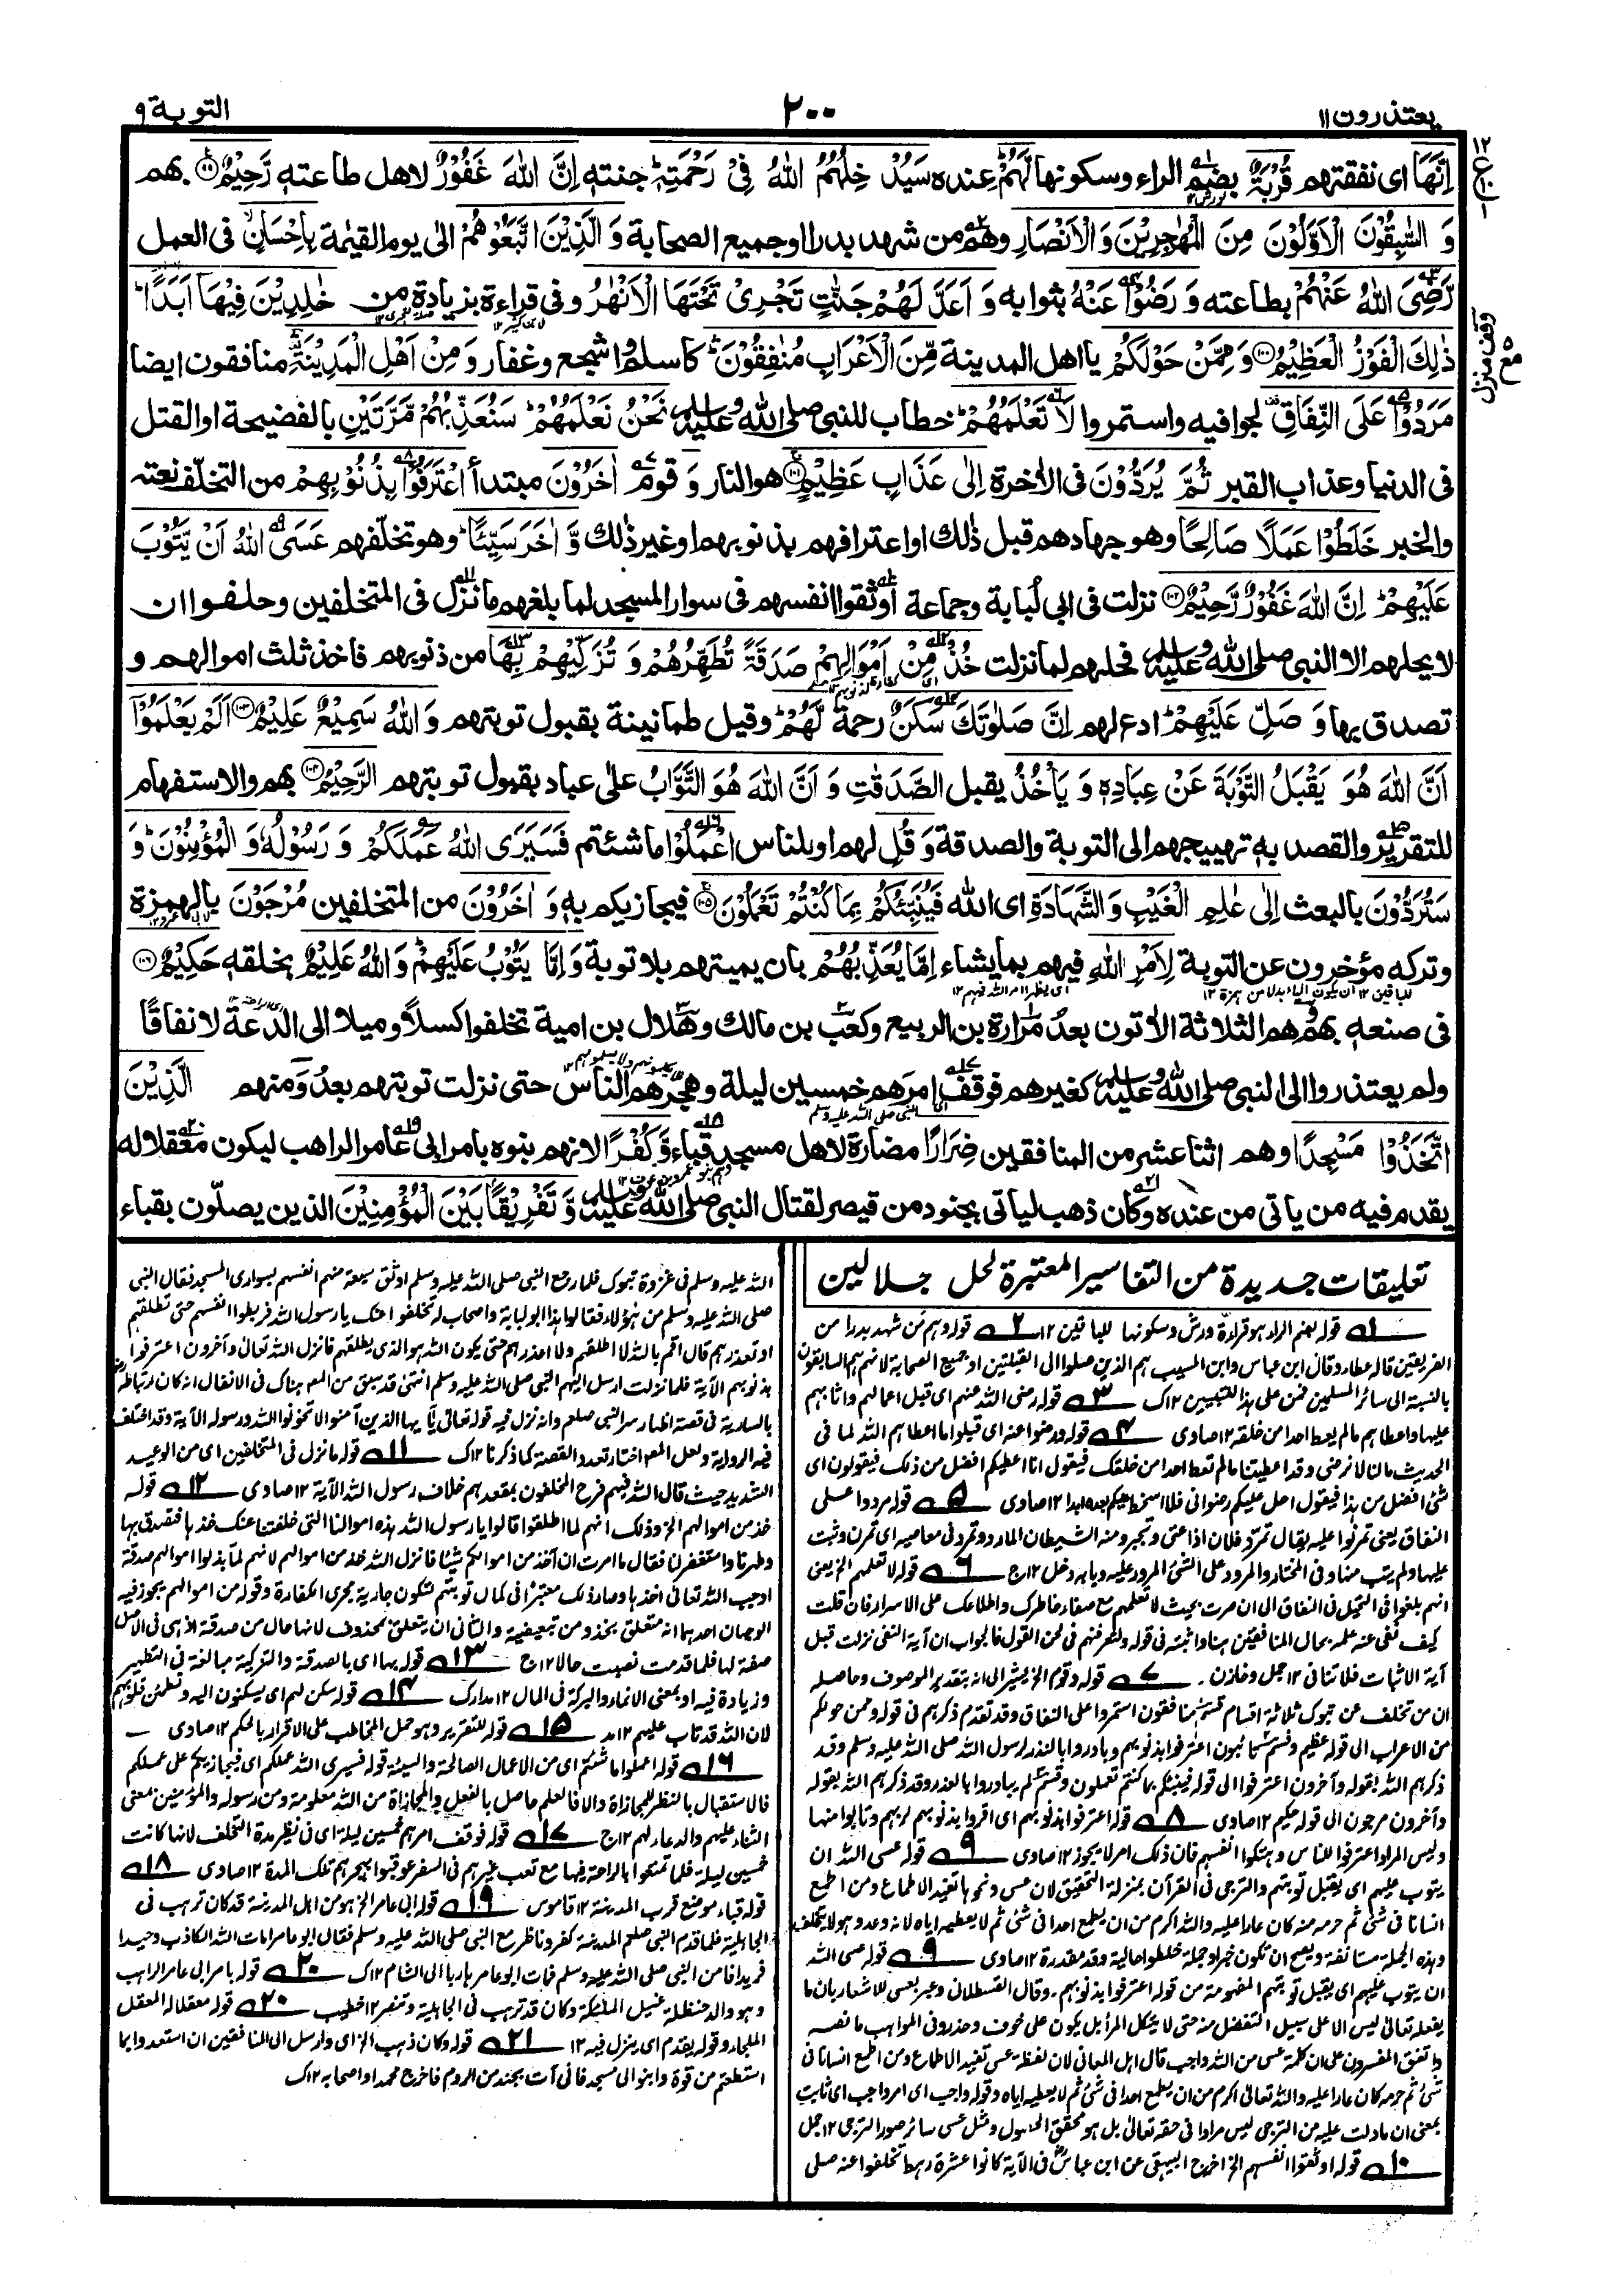 يعتذرون ١١
٢٠٠
التوبة ٩
اِنَّهَا اى نفقتهم قُرْبَةٌ بضم الراء وسكونها لَّهُمْ عنده سَيُدْخِلُهُمُ اللّٰهُ فِيْ رَحْمَتِهٖ جنته اِنَّ اللّٰهَ غَفُوْرٌ لاهل طاعته رَّحِيْمٌ بهم
وَ السّٰبِقُوْنَ الْاَوَّلُوْنَ مِنَ الْمُهٰجِرِيْنَ وَ الْاَنْصَارِ وهم من شهد بدرا او جميع الصحابة وَ الَّذِيْنَ اتَّبَعُوْهُمْ الى يوم القيٰمة بِاِحْسَانٍ فى العمل
رَّضِيَ اللّٰهُ عَنْهُمْ بطاعته وَ رَضُوْا عَنْهُ بثوابه وَ اَعَدَّ لَهُمْ جَنّٰتٍ تَجْرِيْ تَحْتَهَا الْاَنْهٰرُ وفى قراءة بزيادة من خٰلِدِيْنَ فِيْهَا اَبَدًا
ذٰلِكَ الْفَوْزُ الْعَظِيْمُ وَ مِمَّنْ حَوْلَكُمْ يا اهل المدينة مِّنَ الْاَعْرَابِ مُنٰفِقُوْنَ كاسلم واشجع وغفار وَ مِنْ اَهْلِ الْمَدِيْنَةِ منافقون ايضا
مَرَدُوْا عَلَى النِّفَاقِ لجوا فيه واستمروا لَا تَعْلَمُهُمْ خطاب للنبى صلى الله عليه وسلم نَحْنُ نَعْلَمُهُمْ سَنُعَذِّبُهُمْ مَّرَّتَيْنِ بالفضيحة او القتل
فى الدنيا وعذاب القبر ثُمَّ يُرَدُّوْنَ فى الاٰخرة اِلٰى عَذَابٍ عَظِيْمٍ هو النار وَ قوم اٰخَرُوْنَ مبتدأ اعْتَرَفُوْا بِذُنُوْبِهِمْ من التخلف نعته
والخبر خَلَطُوْا عَمَلًا صَالِحًا وهو جهادهم قبل ذٰلك او اعترافهم بذنوبهم او غير ذٰلك وَّ اٰخَرَ سَيِّئًا وهو تخلّفهم عَسَى اللّٰهُ اَنْ يَّتُوْبَ
عَلَيْهِمْ اِنَّ اللّٰهَ غَفُوْرٌ رَّحِيْمٌ نزلت فى ابى لُبابة وجماعة اوثقوا انفسهم فى سوار المسجد لما بلغهم ما نزل فى المتخلفين وحلفوا ان
لا يحلهم الا النبى صلى الله عليه وسلم فحلهم لما نزلت خُذْ مِنْ اَمْوَالِهِمْ صَدَقَةً تُطَهِّرُهُمْ وَ تُزَكِّيْهِمْ بِهَا من ذنوبهم فاخذ ثلث اموالهم و
تصدق بها وَ صَلِّ عَلَيْهِمْ ادع لهم اِنَّ صَلٰوتَكَ سَكَنٌ رحمة لَّهُمْ وقيل طمانينة بقبول توبتهم وَ اللّٰهُ سَمِيْعٌ عَلِيْمٌ اَلَمْ يَعْلَمُوْٓا
اَنَّ اللّٰهَ هُوَ يَقْبَلُ التَّوْبَةَ عَنْ عِبَادِهٖ وَ يَاْخُذُ يقبل الصَّدَقٰتِ وَ اَنَّ اللّٰهَ هُوَ التَّوَّابُ على عباده بقبول توبتهم الرَّحِيْمُ بهم والاستفهام
للتقرير والقصد به تهييجهم الى التوبة والصدقة وَ قُلِ لهم او للناس اعْمَلُوْا ما شئتم فَسَيَرَى اللّٰهُ عَمَلَكُمْ وَ رَسُوْلُهٗ وَ الْمُؤْمِنُوْنَ وَ
سَتُرَدُّوْنَ بالبعث اِلٰى عٰلِمِ الْغَيْبِ وَ الشَّهَادَةِ اى الله فَيُنَبِّئُكُمْ بِمَا كُنْتُمْ تَعْمَلُوْنَ فيجازيكم به وَ اٰخَرُوْنَ من المتخلفين مُرْجَوْنَ بالهمزة
وتركه مؤخرون عن التوبة لِاَمْرِ اللّٰهِ فيهم بما يشاء اِمَّا يُعَذِّبُهُمْ بان يميتهم بلا توبة وَ اِمَّا يَتُوْبُ عَلَيْهِمْ وَ اللّٰهُ عَلِيْمٌ بخلقه حَكِيْمٌ
فى صنعه بهم وهم الثلاثة الاٰتون بعدُ مرارة بن الربيع وكعب بن مالك وهلال بن امية تخلفوا كسلاً وميلا الى الدعة لا نفاقًا
ولم يعتذروا الى النبى صلى الله عليه وسلم كغيرهم فوقف امرهم خمسين ليلة وهجرهم الناس حتى نزلت توبتهم بعدُ وَ منهم الَّذِيْنَ
اتَّخَذُوْا مَسْجِدًا وهم اثنا عشر من المنافقين ضِرَارًا مضارة لاهل مسجد قباء وَّ كُفْرًا لانهم بنوه بامر ابى عامر الراهب ليكون معقلا له
يقدم فيه من ياتى من عنده وكان ذهب لياتى بجنود من قيصر لقتال النبى صلى الله عليه وسلم وَّ تَفْرِيْقًا بَيْنَ الْمُؤْمِنِيْنَ الذين يصلّون بقباء
تعليقات جديدة من التفاسير المعتبرة لحل جلالين
١ قوله بضم الراء هو قراءة ورش وسكونها للباقين ١٢ ٢ قوله وهم من شهد بدرا من
الفريقين قاله عطاء وقال ابن عباس وابن المسيب هم الذين صلوا الى القبلتين او جميع الصحابة لانهم هم السابقون
بالنسبة الى سائر المسلمين فمن على هذا للتبيين ١٢ك ٣ قوله رضى الله عنهم اى قبل اعمالهم واثابهم
عليها واعطاهم مالم يعط احدا من خلقه ١٢ صاوى ٤ قوله ورضوا عنه اى قبلوا ما اعطاهم الله لما فى
الحديث ما لنا لا نرضى وقد اعطيتنا مالم تعط احدا من خلقك فيقول انا اعطيكم افضل من ذلك فيقولون اى
شئ افضل من هذا فيقول احل عليكم رضوانى فلا اسخط عليكم بعده ابدا ١٢ صاوى ٥ قوله مردوا على
النفاق يعنى تمرنوا عليه يقال تمرد فلان اذا عتى وتجبر ومنه الشيطان المارد وتمرد فى معاصيه اى تمرن وثبت
عليها ولم يتب منها وفى المختار والمرود على الشئ المرور عليه وبابه دخل ١٢ج ٦ قوله لا تعلمهم الخ يعنى
انهم بلغوا فى التحيل فى النفاق الى ان صرت بحيث لا تعلمهم مع صفاء خاطرك واطلاعك على الاسرار فان قلت
كيف نفى عنه علمه بحال المنافقين هنا واثبته فى قوله ولتعرفنهم فى لحن القول فالجواب ان آية النفى نزلت قبل
آية الاثبات فلا تنافى ١٢ جمل وخازن. ٧ قوله وقوم الخ يشير الى انه بتقدير الموصوف وحاصله
ان من تخلف عن تبوك ثلاثة اقسام قسم منافقون استمروا على النفاق وقد تقدم ذكرهم فى قوله وممن حولكم
من الاعراب الى قوله عظيم وقسم تائبون اعترفوا بذنوبهم وبادروا بالعذر لرسول الله صلى الله عليه وسلم وقد
ذكرهم الله بقوله وآخرون اعترفوا الى قوله فينبئكم بما كنتم تعملون وقسم لم يبادروا بالعذر وقد ذكرهم الله بقوله
وآخرون مرجون الى قوله حكيم ١٢ صاوى ٨ قوله اعترفوا بذنوبهم اى اقروا بذنوبهم لربهم وتابوا منها
وليس المراد اعترفوا للناس وهتكوا انفسهم فان ذلك امر لا يجوز ١٢ صاوى ٩ قوله عسى الله ان
يتوب عليهم اى يقبل توبتهم والترجى فى القرآن بمنزلة التحقيق لان عسى ونحوها تفيد الاطماع ومن اطمع
انسانا فى شئ ثم حرمه منه كان عارا عليه والله اكرم من ان يطمع احدا فى شئ ثم لا يعطيه اياه لانه وعد وهو لا يخلف
وهذه الجملة مستانفة ويصح ان تكون خبرا وجملة خلطوا حالية وقد مقدرة ١٢ صاوى ٩ قوله عسى الله
ان يتوب عليهم اى يقبل توبتهم المفهومة من قوله اعترفوا بذنوبهم. وقال القسطلانى وعبر بعسى للاشعار بان ما
يفعله تعالى ليس الا على سبيل التفضل منه حتى لا يتكل المرأ بل يكون على خوف وحذر وفى المواهب ما نصه
واتفق المفسرون على ان كلمة عسى من الله واجب قال اهل المعانى لان لفظة عسى تفيد الاطماع ومن اطمع انسانا فى
شئ ثم حرمه كان عارا عليه والله تعالى اكرم من ان يطمع احدا فى شئ ثم لا يعطيه اياه وقوله واجب اى امر واجب اى ثابت
بمعنى ان ما دلت عليه من الترجى ليس مرادا فى حقه تعالى بل هو محقق الحصول ومثل عسى سائر صور الترجى ١٢ جمل
١٠ قوله اوثقوا انفسهم الخ اخرج البيهقى عن ابن عباس فى الآية كانوا عشرة رهط تخلفوا عنه صلى
الله عليه وسلم فى غزوة تبوك فلما رجع النبى صلى الله عليه وسلم اوثق سبعة منهم انفسهم بسوارى المسجد فقال النبى
صلى الله عليه وسلم من هؤلاء فقالوا هذا ابو لبابة واصحاب له تخلفوا عنك يا رسول الله فربطوا انفسهم حتى تطلقهم
او تعذرهم قال اقسم بالله لا اطلقهم ولا اعذرهم حتى يكون الله هو الذى يطلقهم فانزل الله تعالى وآخرون اعترفوا
بذنوبهم الآية فلما نزلت ارسل اليهم النبى صلى الله عليه وسلم انتهى قد سبق من المص هناك فى الانفال انه كان ارتباطه
بالسارية فى قصة اظهار سر النبى صلعم وانه نزل فيه قوله تعالى يا ايها الذين آمنوا لا تخونوا الله ورسوله الآية وقد اختلف
فيه الرواية ولعل المص اختار تعدد القصة كما ذكرنا ١٢ك ١١ قوله ما نزل فى المتخلفين اى من الوعيد
الشديد حيث قال الله فيهم فرح المخلفون بمقعدهم خلاف رسول الله الآية ١٢ صاوى ١٢ قوله
خذ من اموالهم الخ وذلك انهم لما اطلقوا قالوا يا رسول الله هذه اموالنا التى خلفتنا عنك خذها فتصدق بها
وطهرنا واستغفر لنا فقال ما امرت ان آخذ من اموالكم شيئا فانزل الله خذ من اموالهم لانهم لما بذلوا اموالهم صدقة
اوجب الله تعالى اخذها وصار ذلك معتبرا فى كمال توبتهم لتكون جارية مجرى الكفارة وقوله من اموالهم يجوز فيه
الوجهان احدهما انه متعلق بخذ ومن تبعيضية والثانى ان يتعلق بمحذوف لانها حال من صدقة اذ هى فى الاصل
صفة لها فلما قدمت نصبت حالا ١٢ج ١٣ قوله بها اى بالصدقة والتزكية مبالغة فى التطهير
وزيادة فيه او بمعنى الانماء والبركة فى المال ١٢ مدارك ١٤ قوله سكن لهم اى يسكنون اليه وتطمئن قلوبهم
لان الله قد تاب عليهم ١٢ مد ١٥ قوله للتقرير وهو حمل المخاطب على الاقرار بالحكم ١٢ صاوى
١٦ قوله اعملوا ما شئتم اى من الاعمال الصالحة والسيئة قوله فسيرى الله عملكم اى فيجازيكم على عملكم
فالاستقبال بالنظر للمجازاة والا فالعلم حاصل بالفعل والمجازاة من الله معلومة ومن رسوله والمؤمنين بمعنى
الثناء عليهم والدعاء لهم ١٢ج ١٧ قوله فوقف امرهم خمسين ليلة اى فى نظير مدة التخلف لانها كانت
خمسين ليلة فلما تمتعوا بالراحة فيها مع تعب غيرهم فى السفر عوقبوا بهجرهم تلك المدة ١٢ صاوى ١٨
قوله قباء موضع قرب المدينة ١٢ قاموس ١٩ قوله ابى عامر الخ هو من اهل المدينة قد كان ترهب فى
الجاهلية فلما قدم النبى صلعم المدينة كفر وناظر مع النبى صلى الله عليه وسلم فقال ابو عامر امات الله الكاذب وحيدا
فريدا فامن النبى صلى الله عليه وسلم فمات ابو عامر هاربا الى الشام ١٢ك ٢٠ قوله بامر ابى عامر الراهب
وهو والد حنظلة غسيل الملئكة وكان قد ترهب فى الجاهلية وتنصر ١٢ خطيب ٢٠ قوله معقلا له المعقل
الملجاء وقوله يقدم اى ينزل فيه ١٢ ٢١ قوله وكان ذهب الخ اى وارسل الى المنافقين ان استعدوا بما
استطعتم من قوة وابنوا لى مسجدا فانى آت بجند من الروم فاخرج محمدا واصحابه ١٢ك